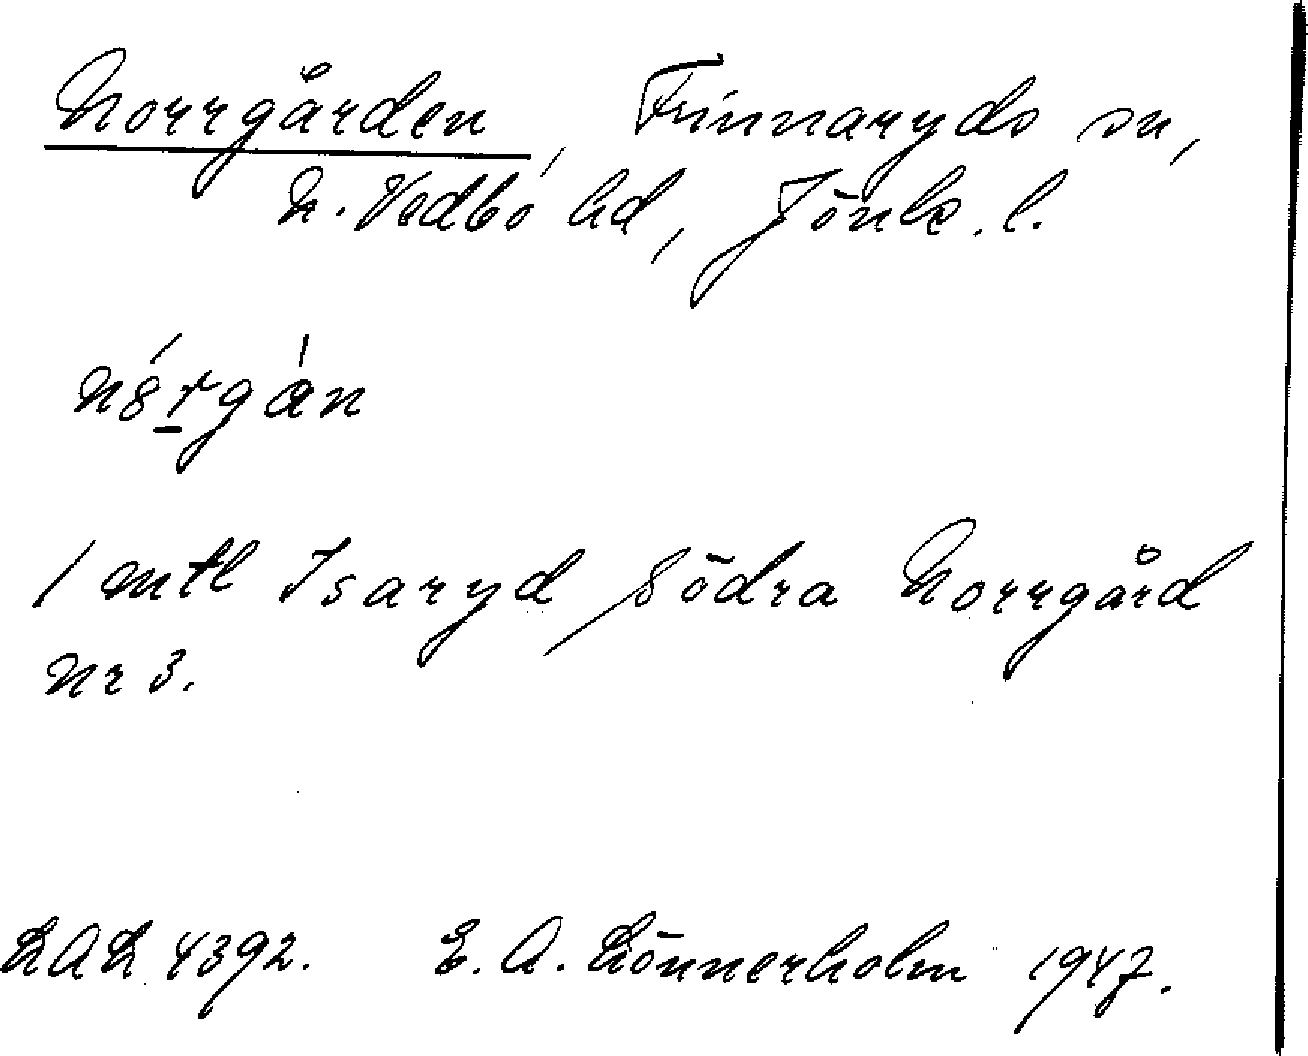 Norrgården, Finnaryds sn,
N. Vedbo hd, Jönk. l.
nórgán
1 mtl Isaryd Södra Norrgård
Nr 3.
LAL 4392. E. A. Lönnerholm 1947.